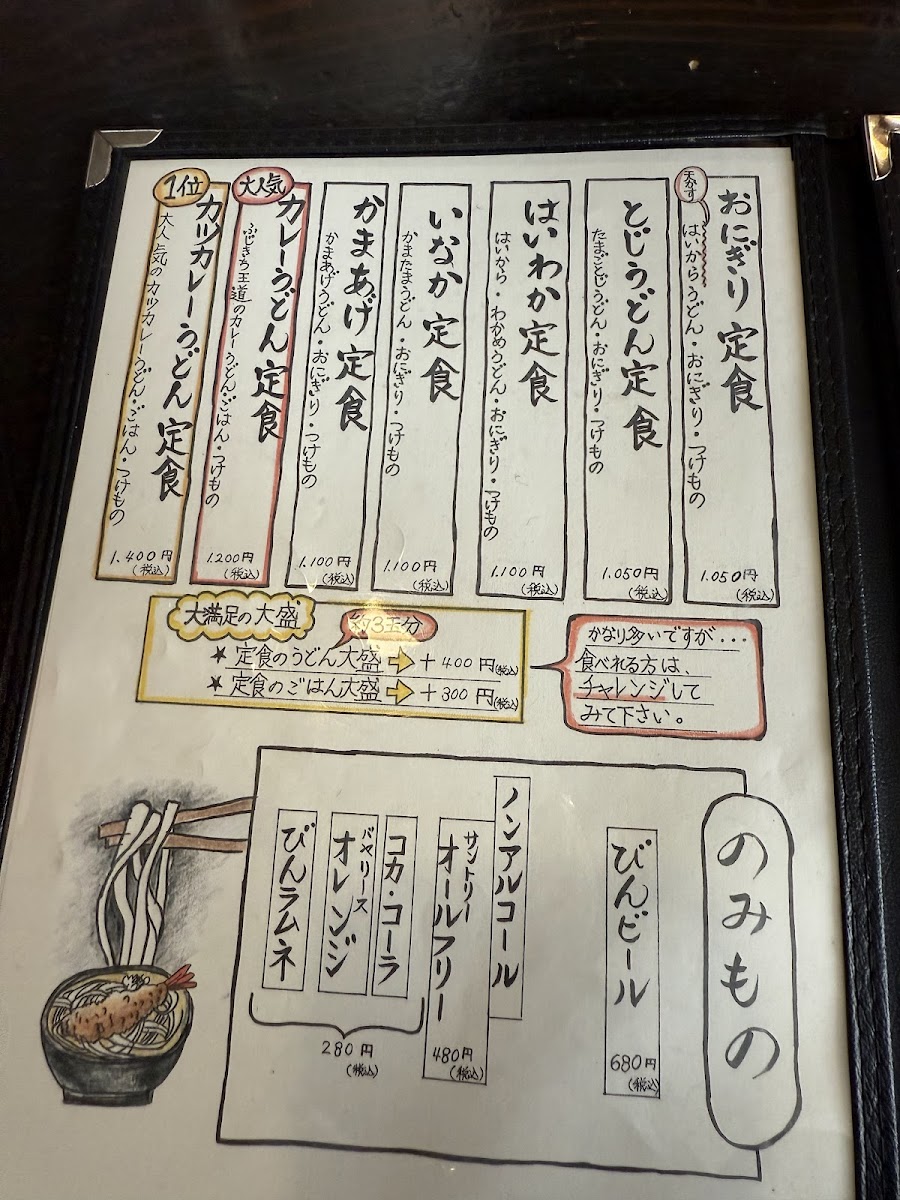 おにぎり定食
天かす
はいからうどん・おにぎり・つけもの
1.050円
(税込)
とじうどん定食
たまごとじうどん・おにぎり・つけもの
1.050円
(税込)
はいわか定食
はいから・わかめうどん・おにぎり・つけもの
1.100円
(税込)
いなか定食
かまたまうどん・おにぎり・つけもの
1.100円
(税込)
かまあげ定食
かまあげうどん・おにぎり・つけもの
1.100円
(税込)
大人気
カレーうどん定食
ふじきち王道のカレーうどん・ごはん・つけもの
1.200円
(税込)
1位
カツカレーうどん定食
大人気のカツカレーうどん・ごはん・つけもの
1.400円
(税込)
大満足の大盛
約3玉分
★定食のうどん大盛⇨+400円(税込)
★定食のごはん大盛⇨+300円(税込)
かなり多いですが...
食べれる方は、
チャレンジして
みて下さい。
のみもの
びんビール
680円
(税込)
ノンアルコール
サントリー
オールフリー
480円
(税込)
コカ・コーラ
バヤリース
オレンジ
びんラムネ
280円
(税込)